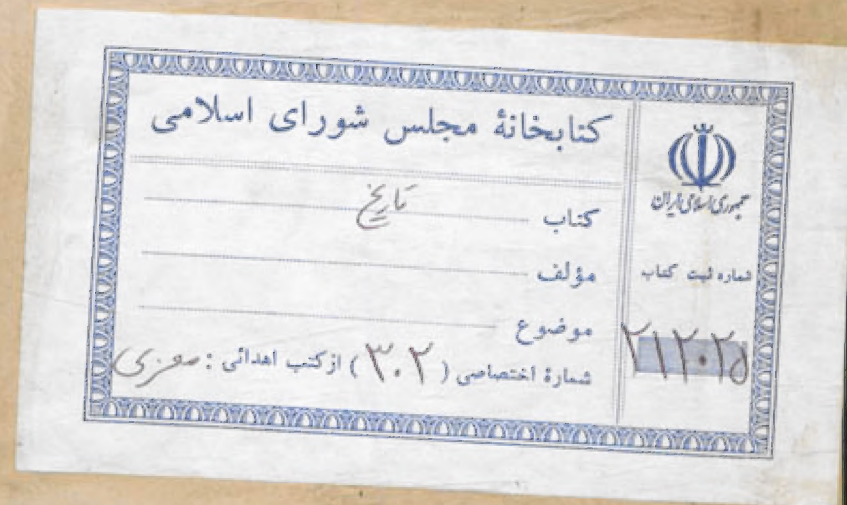 کتابخانهٔ مجلس شورای اسلامی
کتاب تاریخ
مؤلف
موضوع
شمارهٔ اختصاصی ( ۳۰۲ ) از کتب اهدائی : معزی
جمهوری اسلامی ایران
شماره ثبت کتاب
۲۱۲۰۲۵